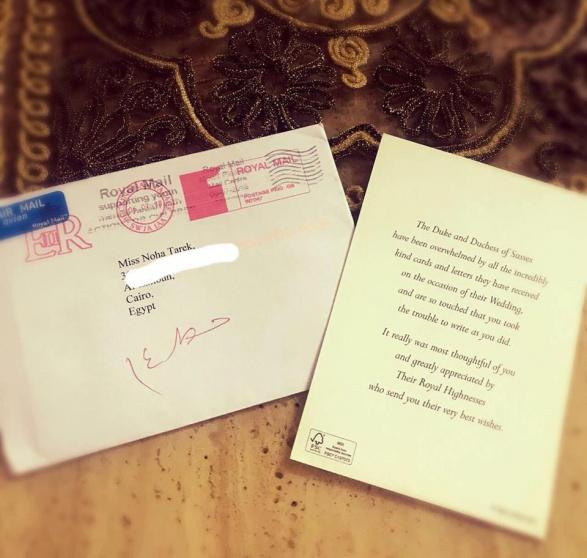 AIR MAIL
avion
Royal Mail
EIIR
Royal Mail
supporting
Royal Mail
ROYAL MAIL
POSTAGE PAID GB
Miss Noha Tarek,
Cairo,
Egypt
The Duke and Duchess of Sussex
have been overwhelmed by all the incredibly
kind cards and letters they have received
on the occasion of their Wedding,
and are so touched that you took
the trouble to write as you did.
It really was most thoughtful of you
and greatly appreciated by
Their Royal Highnesses
who send you their very best wishes.
FSC
MIX